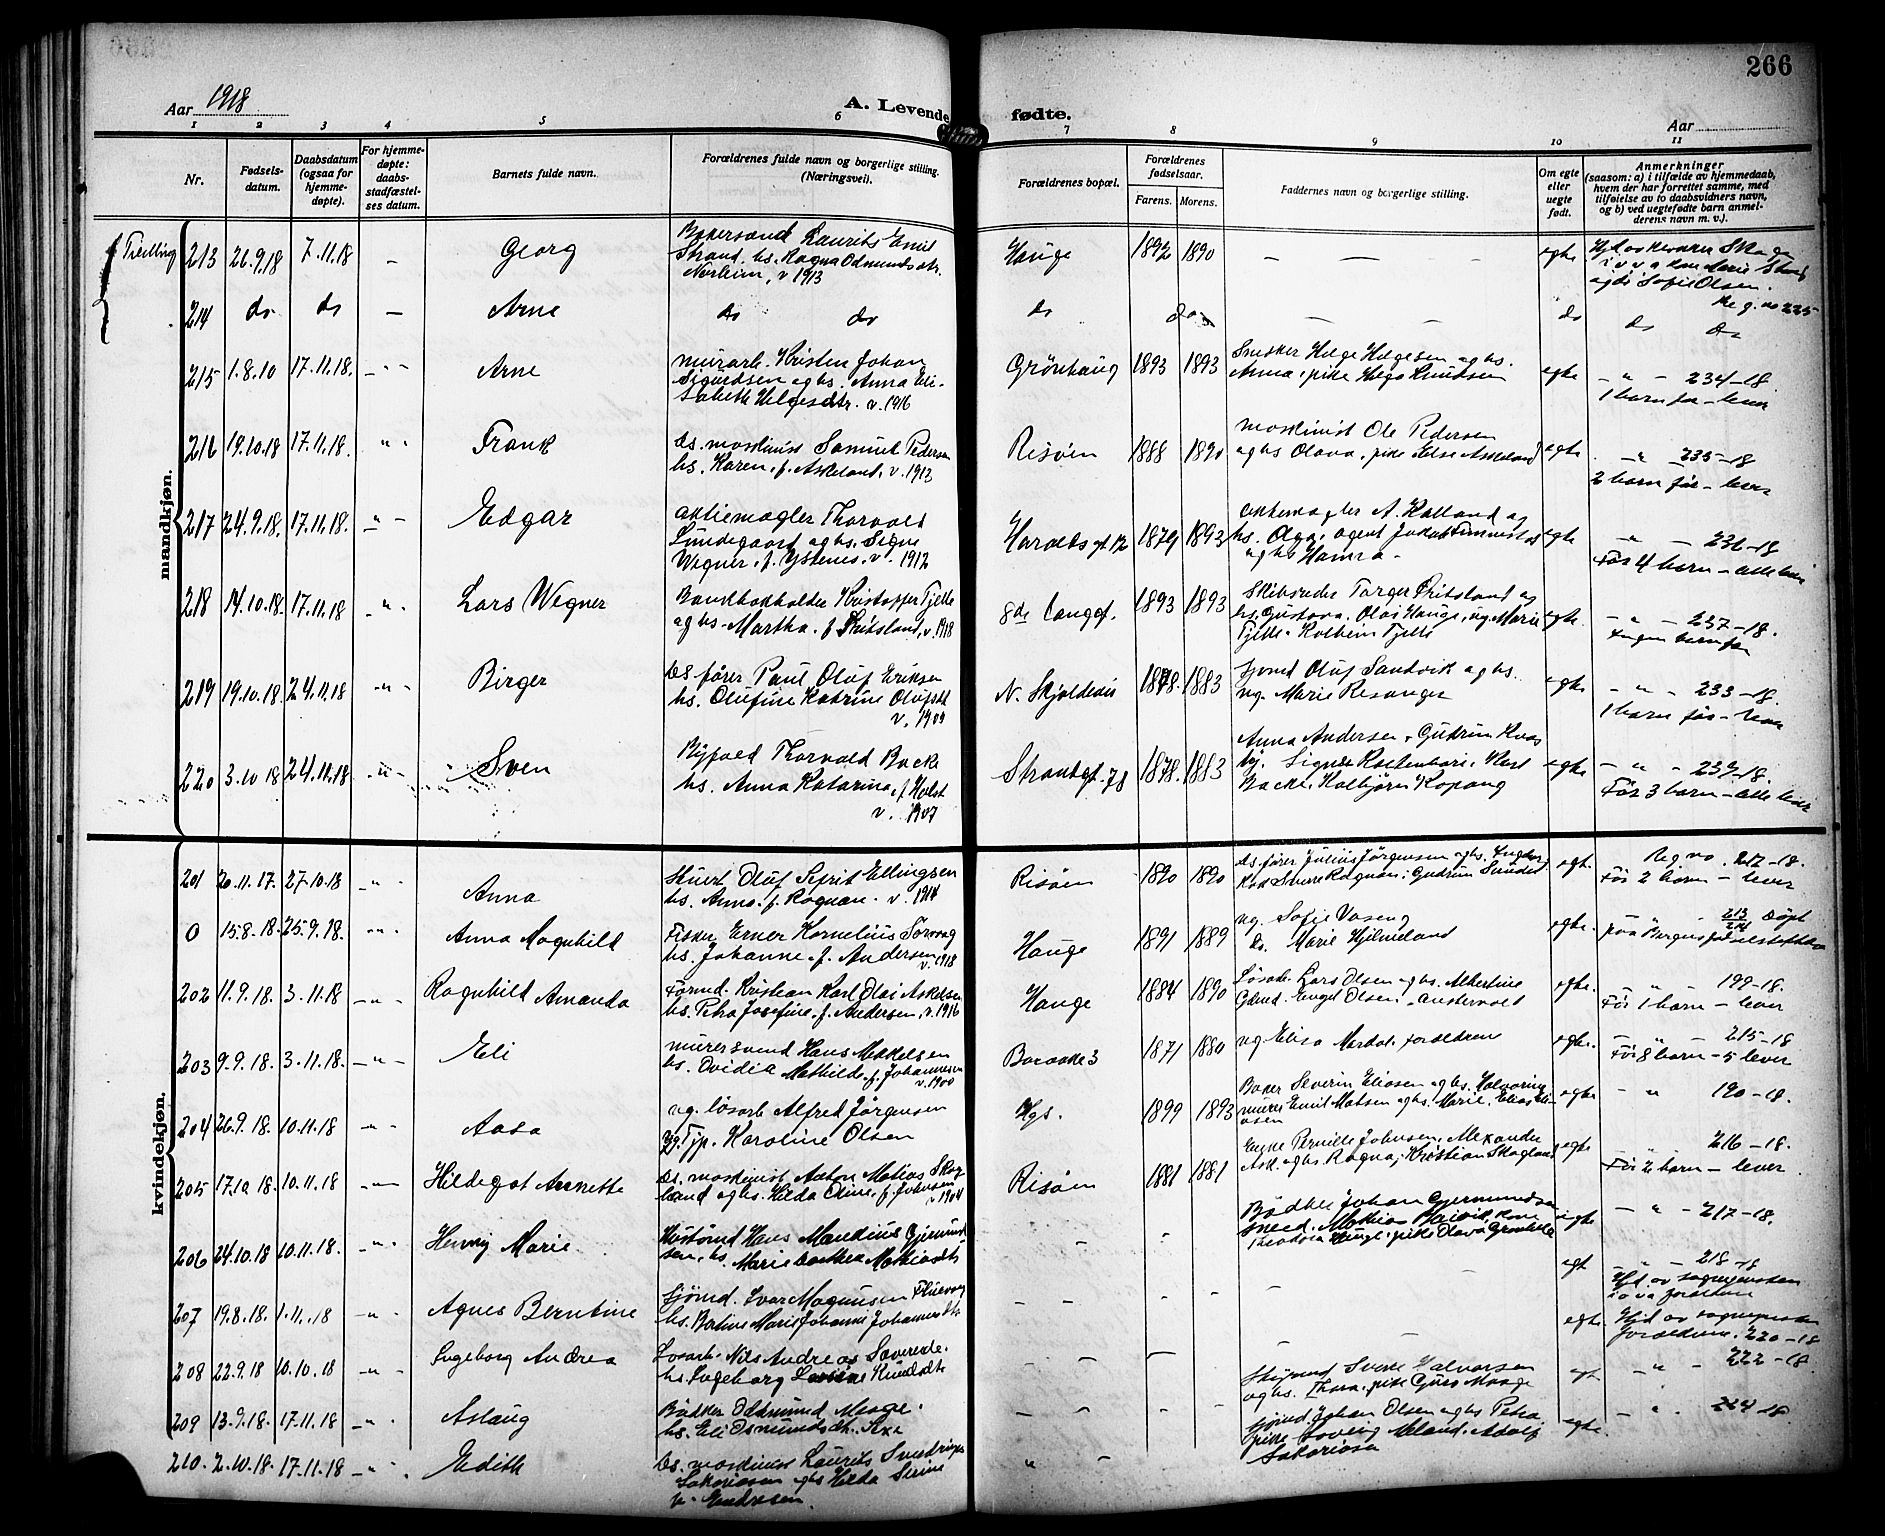 266
Aar 1918
A. Levende fødte.
Aar
1 2 3 4 5 6 7 8 9 10 11
Nr.
Fødsels-
datum.
Daabsdatum
(ogsaa for
hjemme-
døpte).
For hjemme-
døpte:
daabs-
stadfæstel-
ses datum.
Barnets fulde navn.
Forældrenes fulde navn og borgerlige stilling.
(Næringsvei).
Forældrenes bopæl.
Forældrenes
fødselsaar.
Farens. Morens.
Faddernes navn og borgerlige stilling.
Om egte
eller
uegte
født.
Anmerkninger
(saasom: a) i tilfælde av hjemmedaab,
hvem der har forrettet samme, med
tilføielse av to daabsvidners navn,
og b) ved uegtefødte barn anmel-
derens navn m. v.).
mandkjøn.
Tvilling 213 26.9.18 7.11.18 – Georg
Laurits Emil
Strand, hs. Ragna Odmundsdtr.
Norheim, v 1913
Hauge 1892 1890 – – – egte
Sofie Olsen.
Reg. no 225
214 do do – Arne do do do do – – do do do
215 1.8.18 17.11.18. – " – Arne
murarb. Kristen Johan
Sigurdsen og hs. Anna Eli-
sabeth Helgesdtr. v. 1916
Grønhaug 1893 1893
Snekker Helge Helgesen og hs.
Anna, pike Helga Knudsen
egte – " – 234–18.
1 barn før – lever
216 19.10.18 17.11.18. " . Frank
ds. maskinist Samuel Pedersen
hs. Karen, f. Askeland, v. 1912
Risøen 1888 1890
maskinist Ole Pedersen
og hs Olava, pike Else Askeland
egte – " – 235–18
2 barn før – lever
217 24.9.18. 17.11.18. " – Edgar
aktiemægler Thorvald
Lundegaard og hs. Signe
Wegner, f. Ystenes. v. 1912
Haralds gt 12 1879 1893
aktiemægler A. Kalland og
hs. Olga, agent Jakob
og hs Hanna –
egte – " – 236–18
Før 4 barn – alle lever
218 14.10.18. 17.11.18 " . Lars Wegner
Bankbokholder Kristoffer Tjelle
og hs. Martha, f. Fritsland, v. 1918
1893 1893
Skibsreder Torger Fritsland og
hs. Gustava, Olai Hauge, ug. Marie
Tjelle, Kolbein Tjelle
egte. – " – 237–18.
Ingen barn før
219 19.10.18. 24.11.18 – " – Birger
ds fører Paul Oluf Eriksen
hs. Olufine Katrine Olufsdtr
v. 1909
N. Skjoldavei 1878. 1883
Sjømd Oluf Sandvik og hs.
ug. Marie Resanger
egte – " – 233–18.
1 barn før – lever
220 3.10 18 24.11.18 – " – Sven
Byfold Thorvald Backe
hs. Anna Katarina, f. Holst
v. 1907
Strandgt. 78 1878. 1883
Anna Andersen, Gudrun Hvas
Karl
Backe, Kolbjørn Kopang
egte – " – 239–18.
Før 3 barn – alle lever
kvindekjøn.
201 20.11.17. 27.10.18 – " – Anna
Stuert Oluf Sefrit Ellingsen
hs. Anna. f. Ragnan. v. 1914
Risøen 1890 1890
ds. fører Julius Jørgensen og hs. Ingborg
Sverre Ragnan, Gudrun
egte. Reg no. 212–18.
Før 2 barn – lever
0 15.8.18. 25.9.18. – " – Anna Magnhild
Fisker Erner Kornelius
hs. Johanne f. Andersen v. 1918
Hauge 1891 1889
ug. Sofie
do. Marie Hjelmeland
egte. 213/214 døpt
paa Bergens fødselsstiftelse
202 11.9.18. 3.11.18 – " – Ragnhild Amanda
Kristian Karl Olai Askelsen
hs. Petra Josefine, f. Andersen, v. 1916
Hauge 1884 1890
Løsarb. Lars Olsen og hs. Albertine
Engel Olsen, Austervold
egte. – " – 199–18.
Før 1 barn – lever
203 9.9.18. 3.11.18. – " – Eli
murersvend Hans Mikkelsen
hs. Ovidia Mathilde, f. Johannesen
v. 1900
Barakke 3 1871 1880
ug. Elisa Mardal, forældrene
egte. – " – 215–18
Før 8 barn – 5 lever
204 26.9.18. 10.11.18 – " – Aasa
ug. løsarb Alfred Jørgensen
ug. Tjp. Karoline Olsen
Hgs. 1899 1893
Baker Severin Eliasen og hs. Halvarine
murer Emil Matsen og hs. Marie, Elias Eli-
asen
egte – " 190–18.
205 17.10.18. 10.11.18 – " – Hildegot Annette
ds. maskinist Anton Matias Skog-
land og hs. Hilda Oline, f. Johnsen
v 1904
Risøen 1881 1881
Enke Pernille Johnsen, Alexander
Ask. og hs. Ragna, Kristian Skogland
egte " 216–18.
Før 2 barn – lever
206 24.10.18 10.11.18. – " – Henny Marie
Hans Mandius Gjermund-
sen, hs. Marie Dorthea Mathiasdtr
– –
Bødker Johan Gjermundsen
Theodora Hauge, pike Olava
egte – " – 217–18.
207 19.8.18. 1.11.18 – " – Agnes Berntine
Sjømd. Ivar Magnusen
hs. Bertine Marie Johanne Johannesdtr
– – – – – egt – " – 218–18
Hjd. av sogneprsten
i o v a forældrene
208 22.9.18 10.10.18 – " – Ingeborg Andrea
Løsarb. Nils Andreas Sæverede.
hs. Ingeborg Knudsdtr
– – – egte. Hjd av sogneprsten
forældrene. 220–18
209 13.9.18. 17.11.18 – " . Aslaug
Bødker Oddmund Maage.
hs. Eli Osmundsdtr. Sæe
– – – –
Sverre Halvorsen
og hs. Thora, pike Guro Maage
egt – " – 222–18
210. 2.10.18. 17.11.18 – " . Edith
ds. maskinist Laurits
Sakariasen og hs Hilda Serine
f. Endresen.
" – –
Sjømd. Johan Olsen og hs Petra
pike Loving Meland, Adolf
Sakariasa
egte. – " . 224–18.